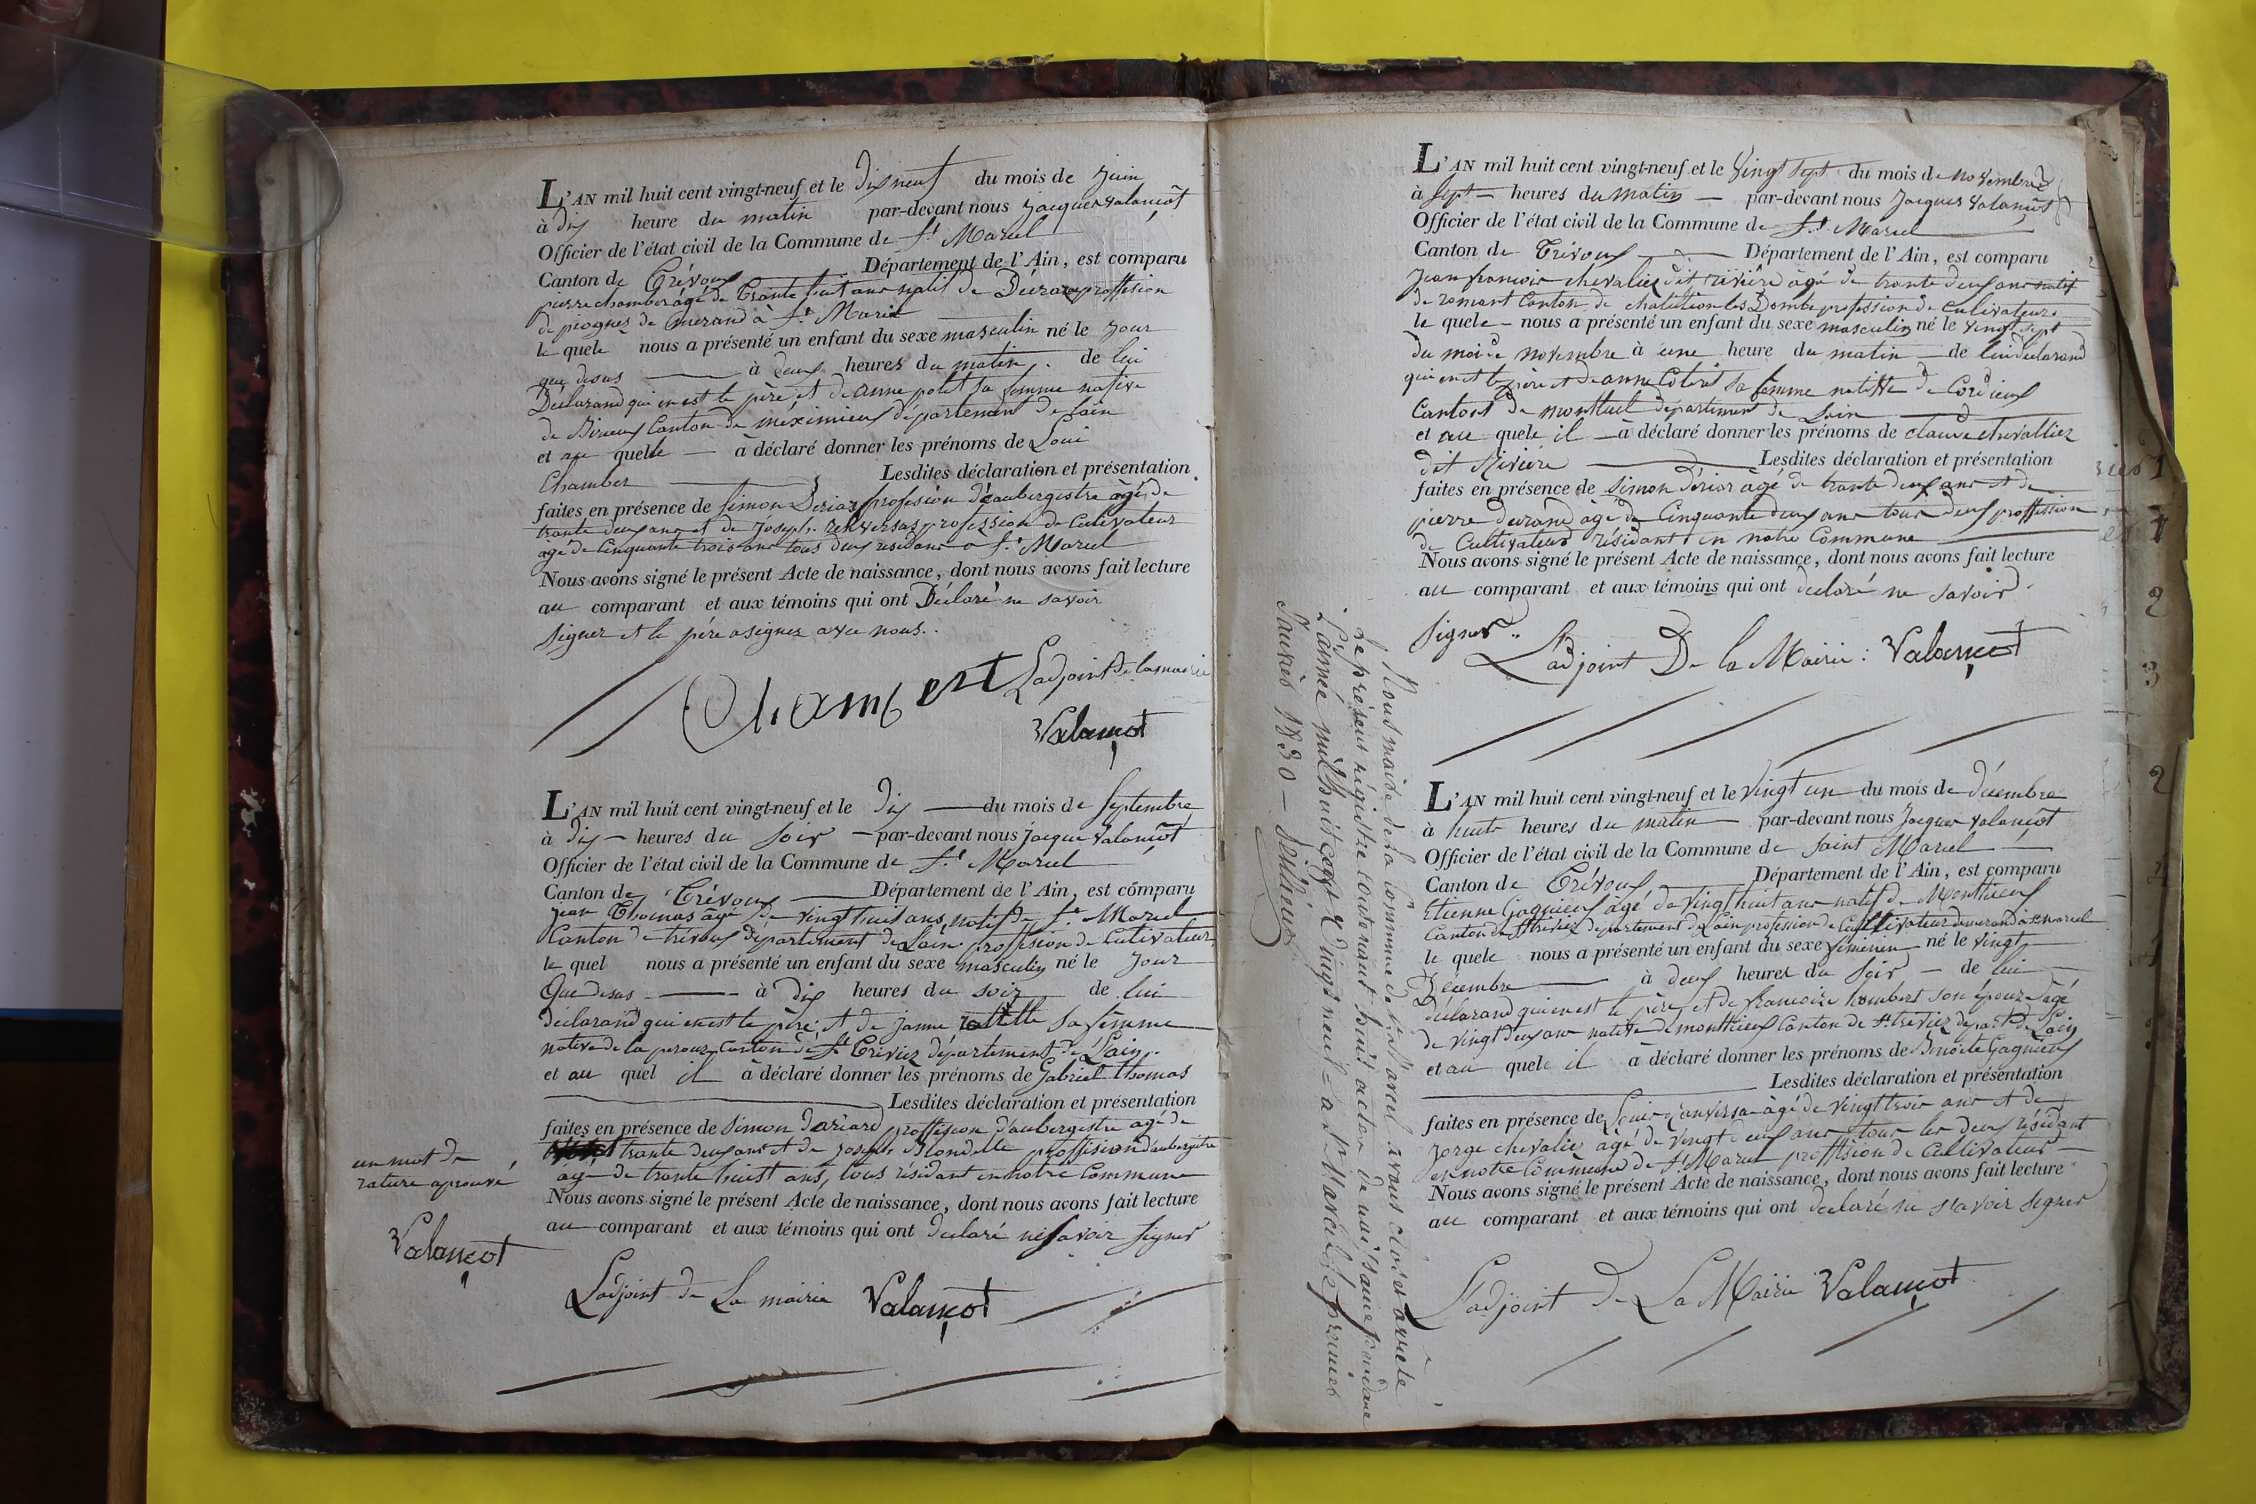 L'AN mil huit cent vingt-neuf et le dix neuf du mois de Juin
à dix heure du matin par-devant nous Jacques Valançot
Officier de l'état civil de la Commune de St Marcel
Canton de Trévoux Département de l'Ain, est comparu
pierre chamber âgé de trante huit ans natif de proffesion
de de a St Marcel
le quele nous a présenté un enfant du sexe masculin né le Jour
que desus à deux heures du matin de lui
Déclarand qui en est le père et de anne polet sa femme native
de Birieux Canton de méximieux département de Lain
et au quelle à déclaré donner les prénoms de Loui
Chamber Lesdites déclaration et présentation
faites en présence de Simon profesion d'aubergistre âgé de
trante deux ans et de Joseph profession de Cultivateur
âgé de Cinquante trois ans tous deux résidans a St Marcel
Nous avons signé le présent Acte de naissance, dont nous avons fait lecture
au comparant et aux témoins qui ont Déclaré ne savoir
signer et le père a signer avec nous.
Chambert Ladjoint de la mairie
Valançot
L'AN mil huit cent vingt-neuf et le dix du mois de Septembre
à dix heures du soir par-devant nous Jacque Valançot
Officier de l'état civil de la Commune de St Marcel
Canton de Trévoux Département de l'Ain, est comparu
jean Thomas âgé de vingt huit ans, natif de St Marcel
Canton de trévoux département de Lain proffision de Cultivateur
le quel nous a présenté un enfant du sexe masculin né le Jour
Que desus à dix heures du soir de lui
déclarand qui en est le père et de janne sa femme
native de la perouz Canton de St Trivier département de Lain
et au quel il à déclaré donner les prénoms de Gabriel Thomas
Lesdites déclaration et présentation
faites en présence de Simon proffision d'aubergistre âgé de
trante deux ans et de Joseph Blondelle proffision d'aubergistre
âgé de trante huist ans, tous résidant en notre Commune
Nous avons signé le présent Acte de naissance, dont nous avons fait lecture
au comparant et aux témoins qui ont déclaré ne savoir signer
un mot de
rature aprouvé
Valançot
Ladjoint de La mairie Valançot
Nous maire de la Commune de St Marcel avons clos et arrêté
Le présent régistre contenant huit actes de naissance pendant
L'année mil huit cent vingt neuf = a St Marcel le premier
Janvier 1830
L'AN mil huit cent vingt-neuf et le Vingt sept du mois de novembre
à sept heures du matin par-devant nous Jacques Valançot
Officier de l'état civil de la Commune de St Marcel
Canton de Trévoux Département de l'Ain, est comparu
Jean francois chevalier dit rivière âgé de trante deux ans natif
de romant Canton de chatillion les Dombe profession de Cultivateur
le quele nous a présenté un enfant du sexe masculin né le vingt sept
du moi de novembre à une heure du matin de lui déclarand
qui en est le père et de anne sa femme natisse de Cordieux
Canton de montluel département de Lain
et au quele il à déclaré donner les prénoms de claude chevallier
dit Rivière Lesdites déclaration et présentation
faites en présence de Simon âgé de trante deux ans et de
pierre durand agé de Cinquante deux ans tous deux proffision
de Cultivateur résidant en notre Commune
Nous avons signé le présent Acte de naissance, dont nous avons fait lecture
au comparant et aux témoins qui ont declaré ne savoir
signer
L'adjoint De la Mairie : Valançot
L'AN mil huit cent vingt-neuf et le vingt un du mois de décembre
à huit heures du matin par-devant nous Jacque Valançot
Officier de l'état civil de la Commune de Saint Marcel
Canton de Trévoux Département de l'Ain, est comparu
Etienne Gagnieux âgé de vingt huit ans natif de Monthieux
Canton de St trivier département de Lain profession de Cultivateur demerand a St marcel
le quele nous a présenté un enfant du sexe féminin né le vingt
Décembre à deux heures du Soir de lui
déclarand qui en est le père et de francoise humbert son épouze agé
de vingt deux ans native de monthieux Canton de St trévier départ de Lain
et au quele il à déclaré donner les prénoms de Benoite Gagnieux
Lesdites déclaration et présentation
faites en présence de Louis âgé de vingt trois ans et de
Jorge chevalier agé de vingt deux ans tous les deux résidant
en notre Commune de St Marcel proffision de Cultivateur
Nous avons signé le présent Acte de naissance, dont nous avons fait lecture
au comparant et aux témoins qui ont declaré ne savoir signer
L'adjoint De La Mairie Valançot